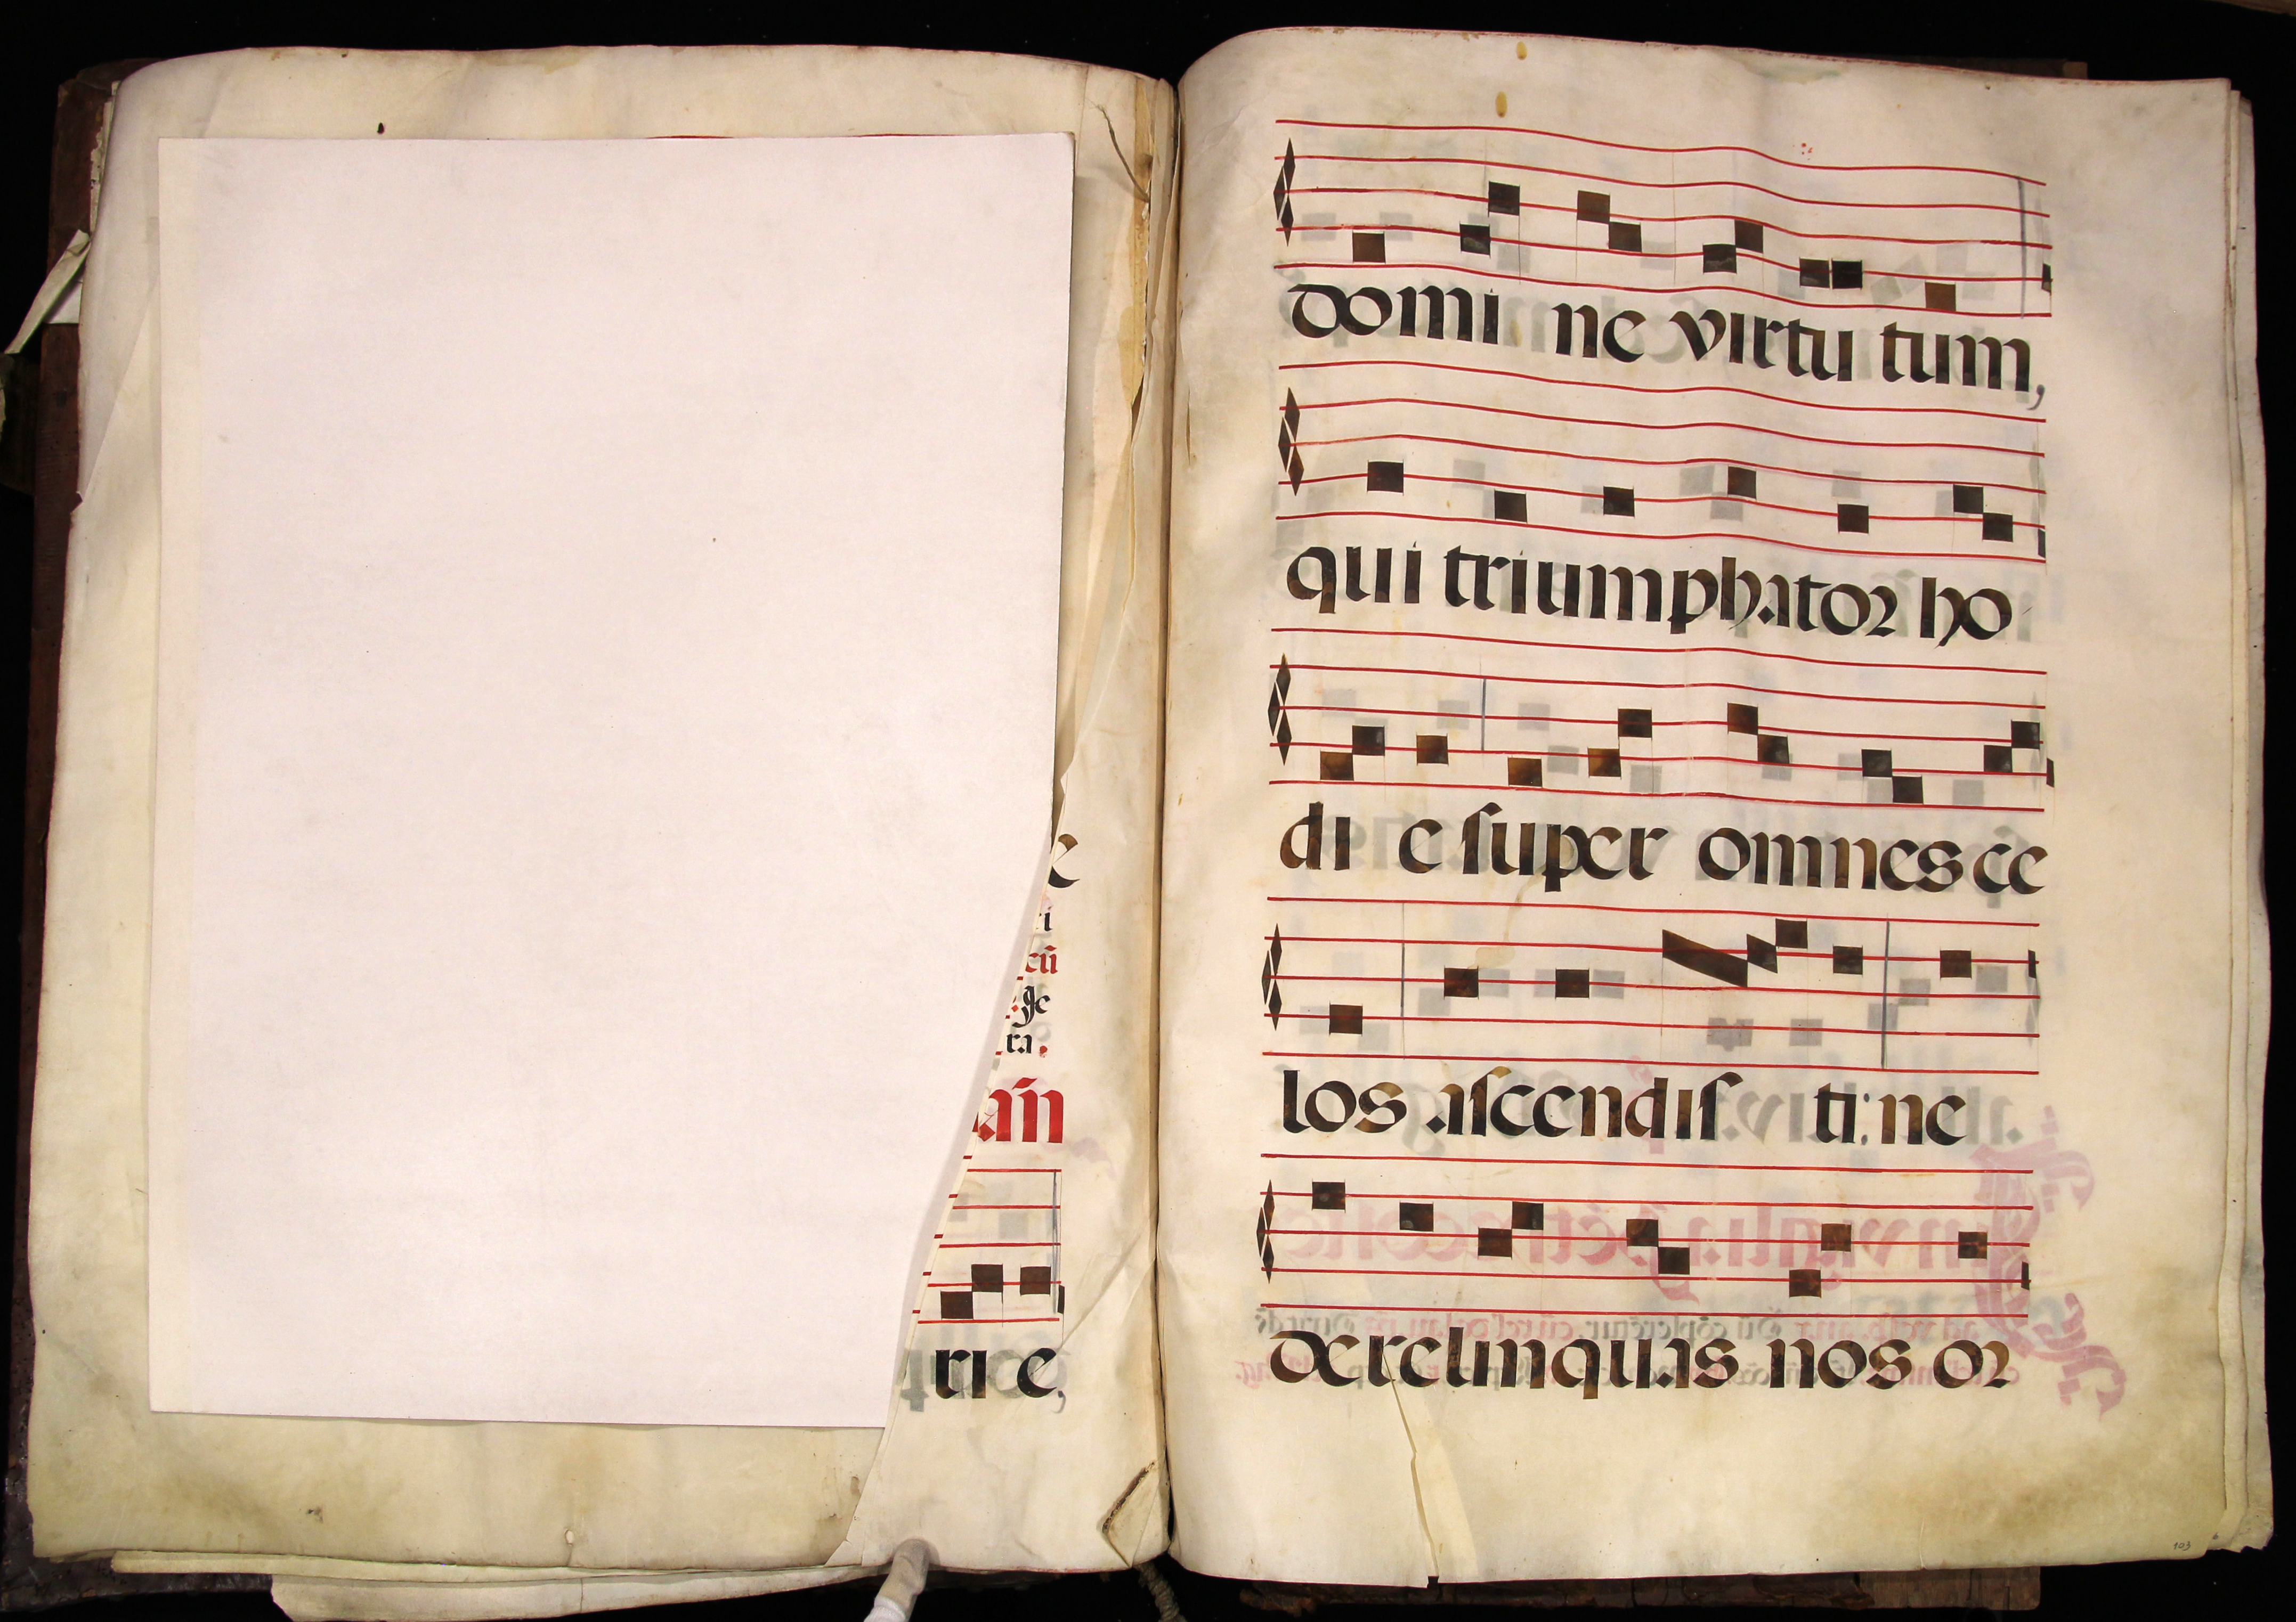 e
ri
cū
ge
ra.
añ
ri e,
domi ne virtu tum,
qui triumphator ho
di e super omnes ce
los ascendis ti: ne
derelinquas nos or
103